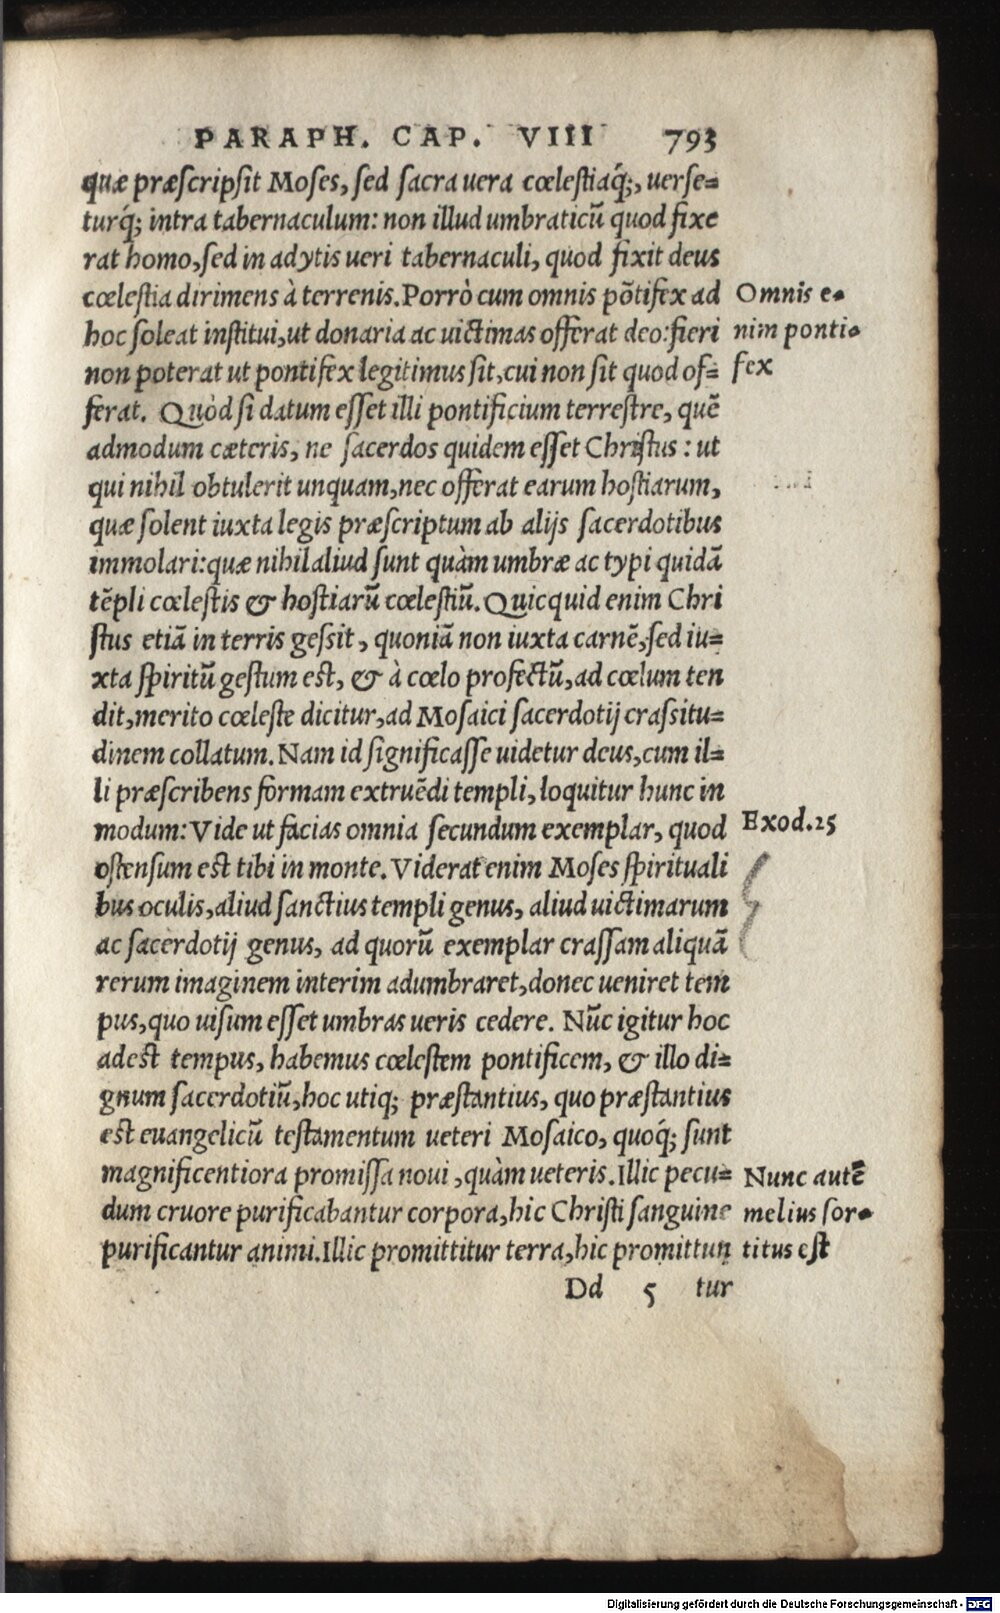 PARAPH. CAP. VIII 793
quæ præscripsit Moses, sed sacra vera cœlestiaq́;, verse=
turq́; intra tabernaculum: non illud umbraticũ quod fixe
rat homo, sed in adytis ueri tabernaculi, quod fixit deus
cœlestia dirimens à terrenis. Porrò cum omnis põtifex ad
hoc soleat institui, ut donaria ac uictimas offerat deo: fieri
non poterat ut pontifex legitimus sit, cui non sit quod of=
ferat. Quòd si datum esset illi pontificium terrestre, quẽ
admodum cæteris, ne sacerdos quidem esset Christus: ut
qui nihil obtulerit unquam, nec offerat earum hostiarum,
quæ solent iuxta legis præscriptum ab alijs sacerdotibus
immolari: quæ nihil aliud sunt quàm umbræ ac typi quidã
tẽpli cœlestis & hostiarũ cœlestiũ. Quicquid enim Chri
stus etiã in terris gessit, quoniã non iuxta carnẽ, sed iu=
xta spiritũ gestum est, & à cœlo profectũ, ad cœlum ten
dit, merito cœleste dicitur, ad Mosaici sacerdotij crassitu=
dinem collatum. Nam id significasse uidetur deus, cum il=
li præscribens formam extruẽdi templi, loquitur hunc in
modum: Vide ut facias omnia secundum exemplar, quod
ostensum est tibi in monte. Viderat enim Moses spirituali
bus oculis, aliud sanctius templi genus, aliud uictimarum
ac sacerdotij genus, ad quorũ exemplar crassam aliquã
rerum imaginem interim adumbraret, donec ueniret tem
pus, quo uisum esset umbras ueris cedere. Nũc igitur hoc
adest tempus, habemus cœlestem pontificem, & illo di=
gnum sacerdotiũ, hoc utiq; præstantius, quo præstantius
est euangelicũ testamentum ueteri Mosaico, quoq́; sunt
magnificentiora promissa noui, quàm ueteris. Illic pecu=
dum cruore purificabantur corpora, hic Christi sanguine
purificantur animi. Illic promittitur terra, hic promittun
Dd 5 tur
Omnis e-
nim ponti-
fex
Exod. 25
Nunc autẽ
melius sor-
titus est
Digitalisierung gefördert durch die Deutsche Forschungsgemeinschaft - DFG